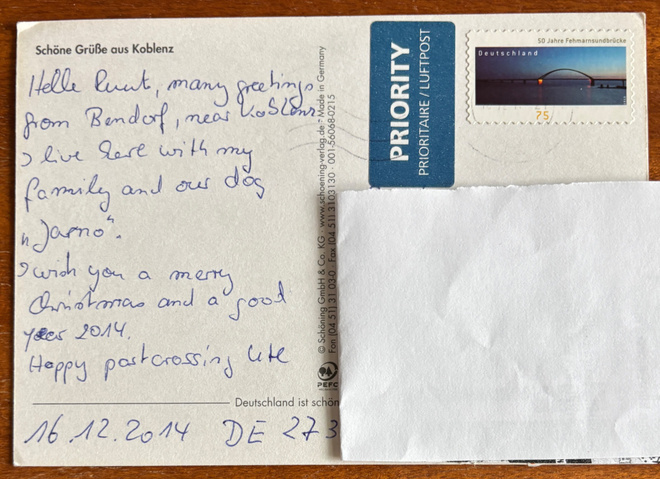 Schöne Grüße aus Koblenz
Hello Ruut, many greetings
from Bendorf, near Koblenz.
I live here with my
family and our dog
„Jarno“.
I wish you a merry
Christmas and a good
year 2014.
Happy postcrossing Ute
Deutschland ist schön
16.12.2014 DE 273
© Schöning GmbH & Co. KG · www.schoening-verlag.de · Made in Germany
Fon (04 51) 31 03-0 · Fax (04 51) 3103130 · 001-56068-0215
PEFC
PRIORITY
PRIORITAIRE / LUFTPOST
50 Jahre Fehmarnsundbrücke
Deutschland
75